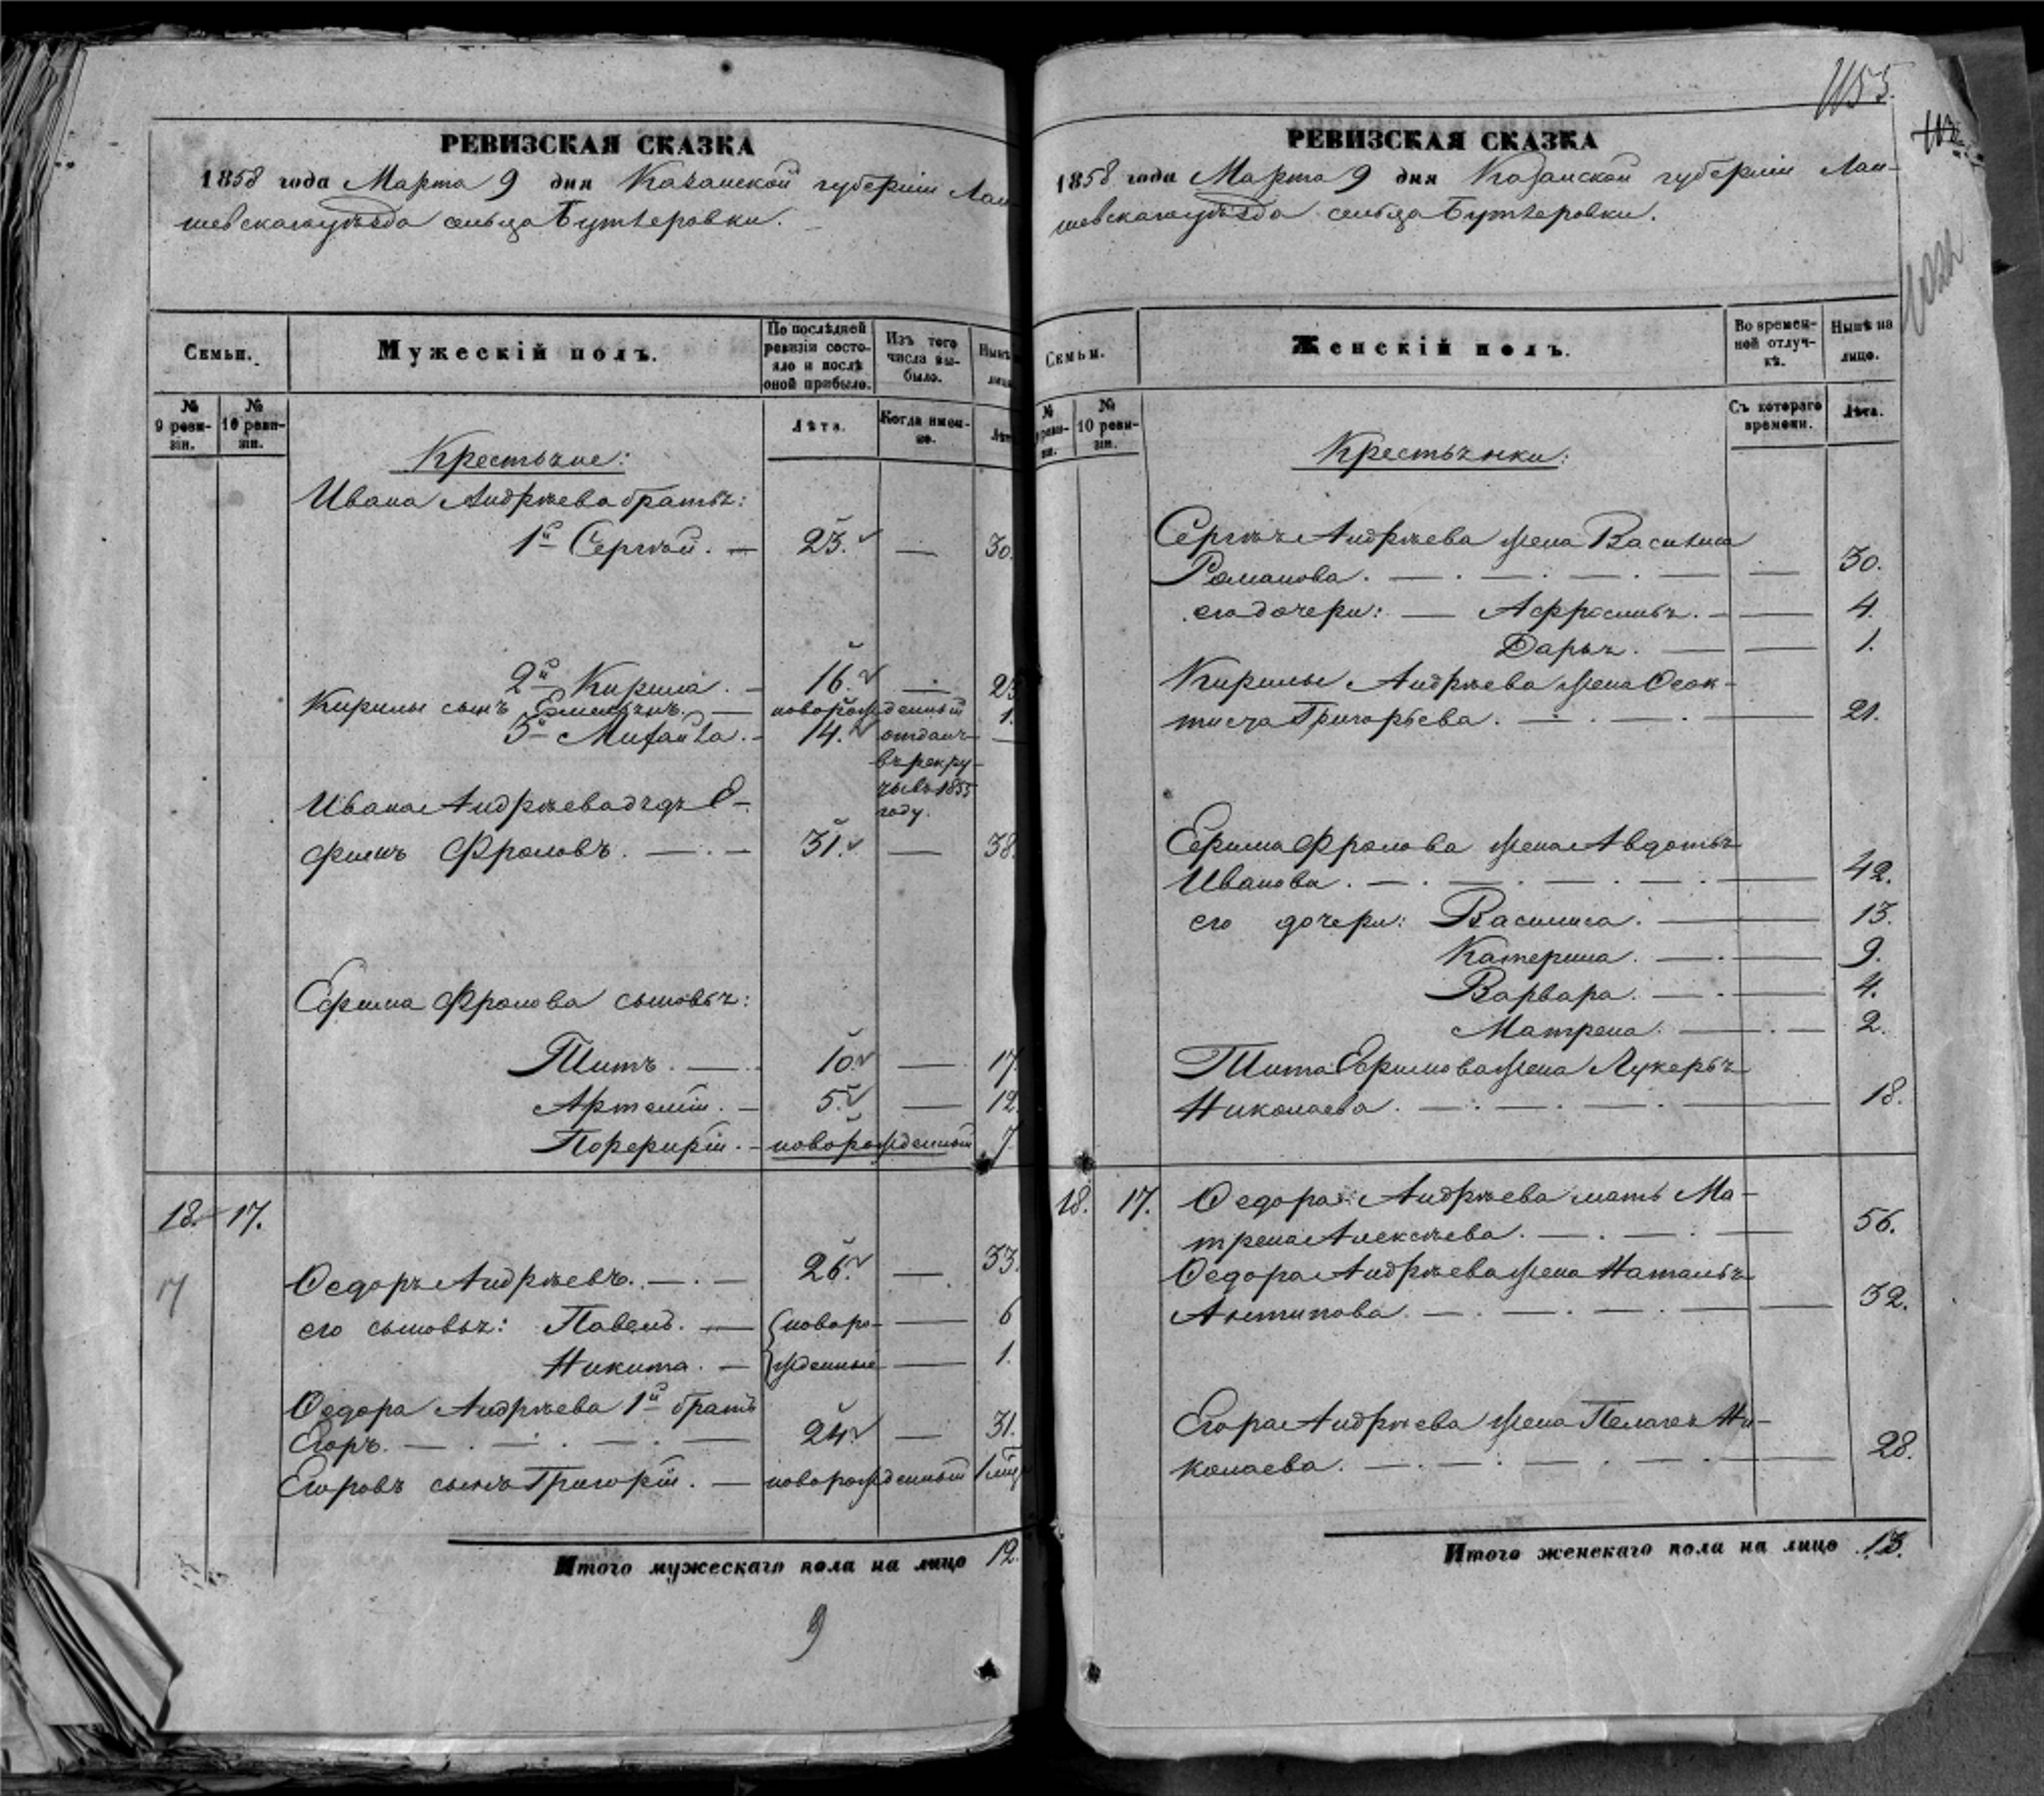 РЕВИЗСКАЯ СКАЗКА
1858 года Марта 9 дня Казанской губерніи Лаи
шевскаго уѣзда сельца Бутлеровки.
Семьи.
Мужескій полъ.
По послѣдней ревизіи состояло и послѣ оной прибыло.
Изъ того числа выбыло.
Нынѣ
лицо
№ 9 ревизіи.
№ 10 ревизіи.
Лѣта.
Когда именно.
Лѣт
Крестьяне:
Ивана Андрѣева братья:
1й Сергѣй. — 23. — 30.
2й Кирила. — 16. — 23
Кирилы сынъ Емельянъ. — новорожденный 1.
3й Михайла. — 14. отданъ —
въ рекру-
ты въ 1855
году.
Ивана Андрѣева дядя Е-
фимъ Фроловъ. — 31. — 38.
Ефима Фролова сыновья:
Титъ. — 10 — 17.
Артемій. — 5. — 12.
Порфирій. — новорожденный 7
18. 17.
17
Ѳедоръ Андрѣевъ. — 26. — 33.
его сыновья: Павелъ. — новоро- — 6
Никита. — жденные — 1.
Ѳедора Андрѣева 1й братъ
Егоръ. — 24. — 31.
Егоровъ сынъ Григорій. — новорожденный 1
Итого мужескаго пола на лицо 12.
9
1155.
РЕВИЗСКАЯ СКАЗКА
1858 года Марта 9 дня Казанской губерніи Лаи-
шевскаго уѣзда сельца Бутлеровки.
Семьи.
Женскій полъ.
Во временной отлучкѣ.
Нынѣ на лицо.
№ 10 ревизіи.
Съ котораго времени.
Лѣта.
Крестьянки:
Сергѣя Андрѣева жена Василиса
Романова. — — 30.
его дочери: — Афросинья. — — 4.
Дарья. — — 1.
Кирилы Андрѣева жена Ѳеок-
тиста Григорьева. — — 21.
Ефима Фролова жена Авдотья
Иванова. — — 42.
его дочери: Василиса. — 13.
Катерина. — 9.
Варвара. — 4.
Матрена. — 2.
Тита Ефимова жена Лукерья
Николаева. — — 18.
18. 17. Ѳедора Андрѣева мать Ма-
трена Алексѣева. — — 56.
Ѳедора Андрѣева жена Наталья
Антипова. — — 32.
Егора Андрѣева жена Пелагея Ни-
колаева. — — 28.
Итого женскаго пола на лицо 13.